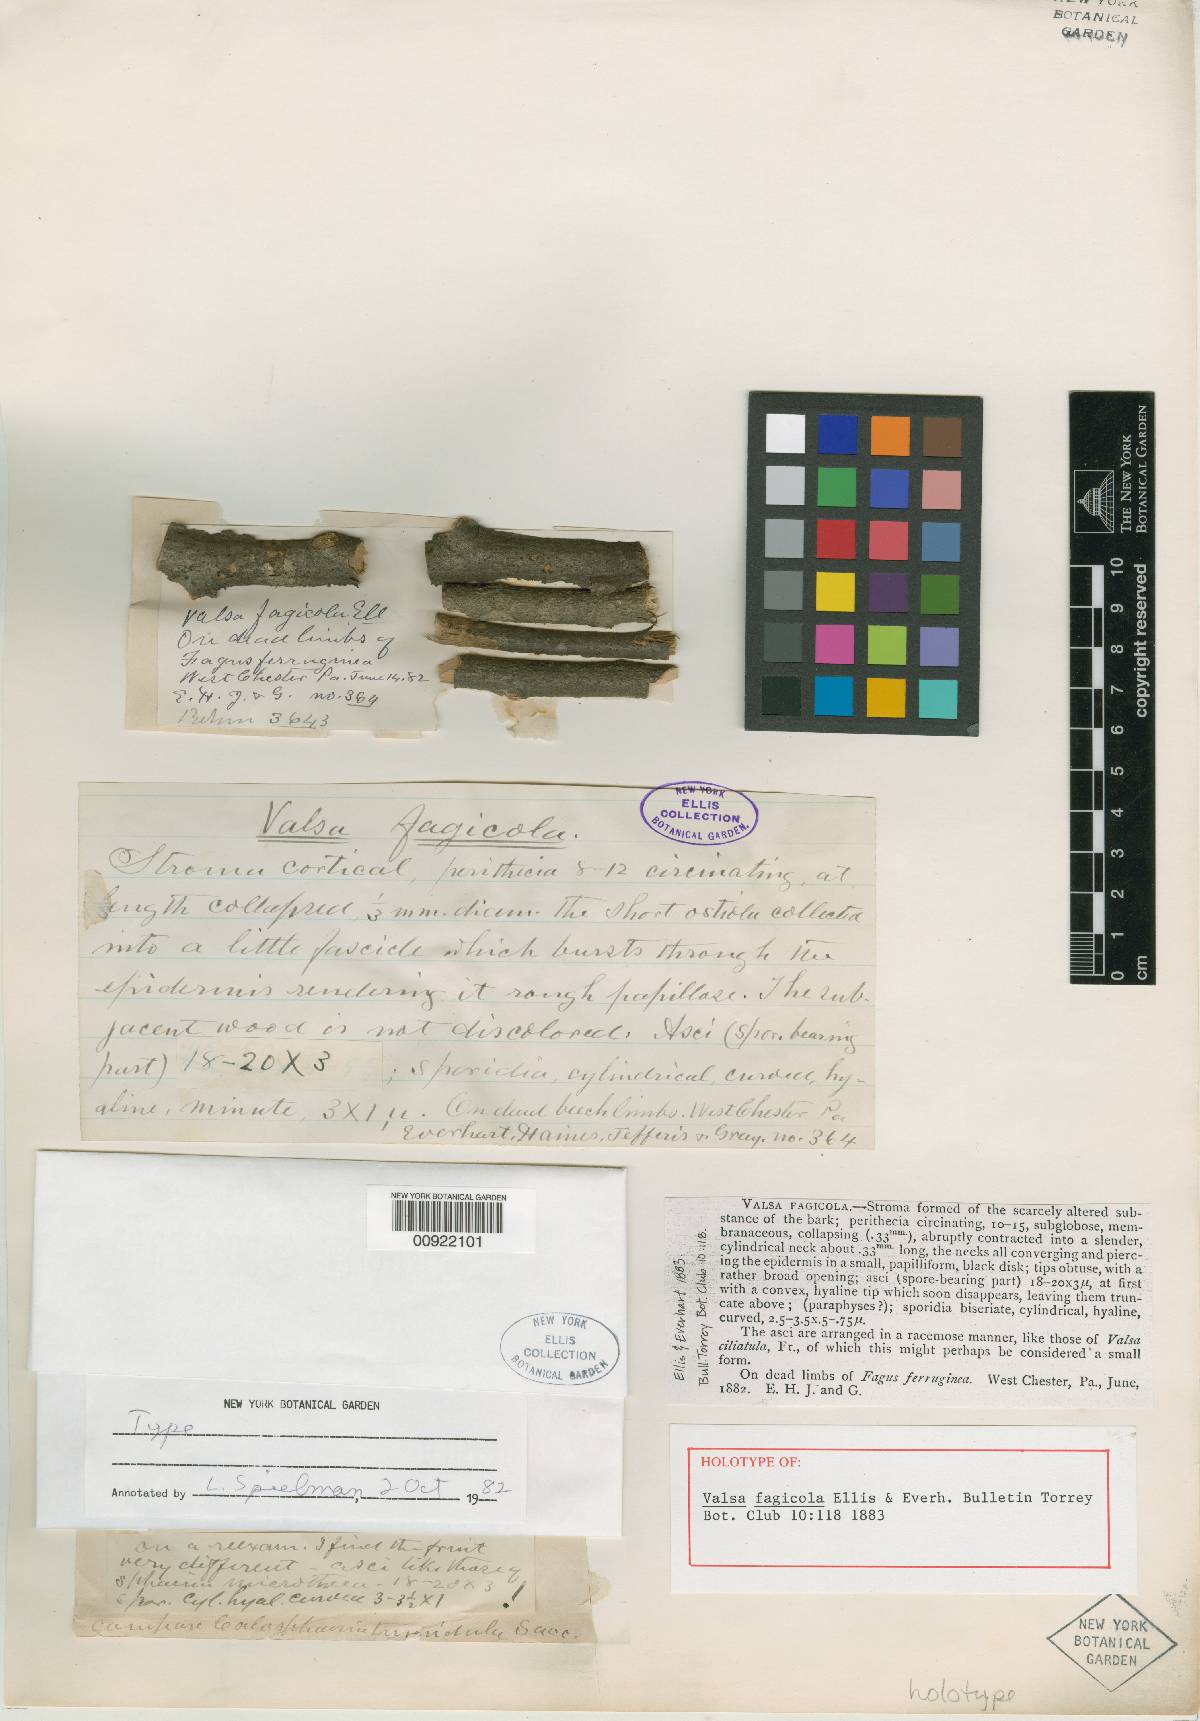 NEW YORK
BOTANICAL
GARDEN
THE NEW YORK
BOTANICAL GARDEN
copyright reserved
10
9
8
7
6
5
4
3
2
1
0
cm
Valsa fagicola Ell
On dead limbs of
Fagus ferruginea
West Chester Pa. June 14. 82
E. H. J. & G. no. 364
3643
NEW YORK
ELLIS
COLLECTION
BOTANICAL GARDEN.
Valsa fagicola.
Stroma cortical, perithecia 8-12 circinating, at
length collapsed, 1/3 mm. diam. the short ostiola collected
into a little fascicle which bursts through the
epidermis rendering it rough papillose. The sub-
jacent wood is not discolored. Asci (spor. bearing
part) 18-20X3 ; sporidia, cylindrical, curved, hy-
aline, minute, 3X1 µ. On dead beech limbs. West Chester Pa
Everhart, Haines, Jefferis & Gray. no. 364
NEW YORK BOTANICAL GARDEN
00922101
NEW YORK
ELLIS
COLLECTION
BOTANICAL GARDEN
NEW YORK BOTANICAL GARDEN
Type
Annotated by L. Spielman, 2 Oct 1982
on a reexam. I find the fruit
very different - asci like those of
18-20 X 3
spor. cyl. hyal. curved 3-3½ X 1 !
compare Sacc.
Ellis & Everhart 1883.
Bull. Torrey Bot. Club 10:118.
VALSA FAGICOLA.—Stroma formed of the scarcely altered sub-
stance of the bark; perithecia circinating, 10-15, subglobose, mem-
branaceous, collapsing (.33mm.), abruptly contracted into a slender,
cylindrical neck about .33mm. long, the necks all converging and pierc-
ing the epidermis in a small, papilliform, black disk; tips obtuse, with a
rather broad opening; asci (spore-bearing part) 18-20x3µ, at first
with a convex, hyaline tip which soon disappears, leaving them trun-
cate above; (paraphyses?); sporidia biseriate, cylindrical, hyaline,
curved, 2.5-3.5x.5-.75µ.
The asci are arranged in a racemose manner, like those of Valsa
ciliatula, Fr., of which this might perhaps be considered a small
form.
On dead limbs of Fagus ferruginea. West Chester, Pa., June,
1882. E. H. J. and G.
HOLOTYPE OF:
Valsa fagicola Ellis & Everh. Bulletin Torrey
Bot. Club 10:118 1883
NEW YORK
BOTANICAL
GARDEN
holotype